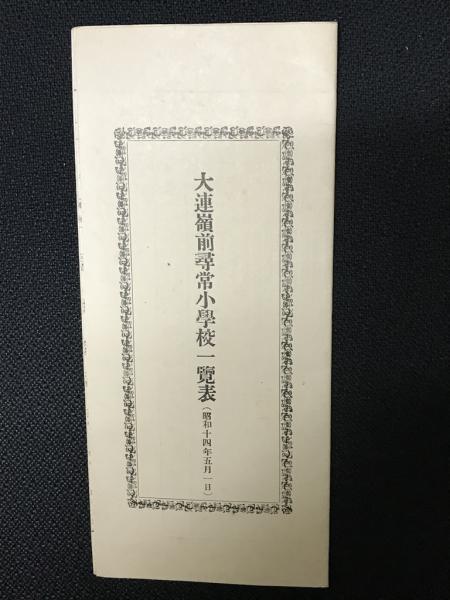 大連嶺前尋常小學校一覽表(昭和十四年五月一日)